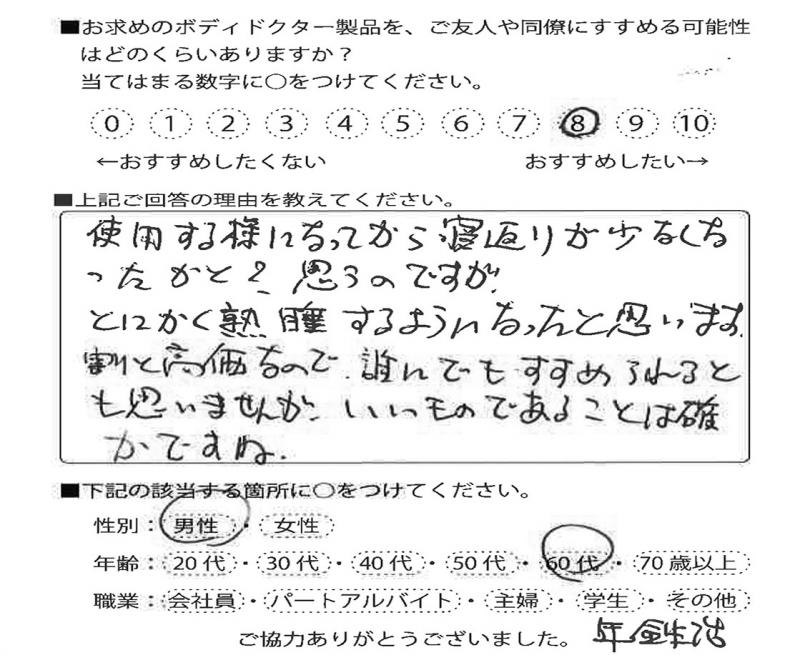 ■お求めのボディドクター製品を、ご友人や同僚にすすめる可能性
はどのくらいありますか？
当てはまる数字に○をつけてください。
0 1 2 3 4 5 6 7 8 9 10
←おすすめしたくない おすすめしたい→
■上記ご回答の理由を教えてください。
使用する様になってから寝返りが少なくな
ったかと？思うのですが、
とにかく熟睡するようになったと思います。
割と高価なので、誰にでもすすめられると
も思いませんが、いいものであることは確
かですね.
■下記の該当する箇所に○をつけてください。
性別：男性・女性
年齢：20代・30代・40代・50代・60代・70歳以上
職業：会社員・パートアルバイト・主婦・学生・その他
ご協力ありがとうございました。 年金生活